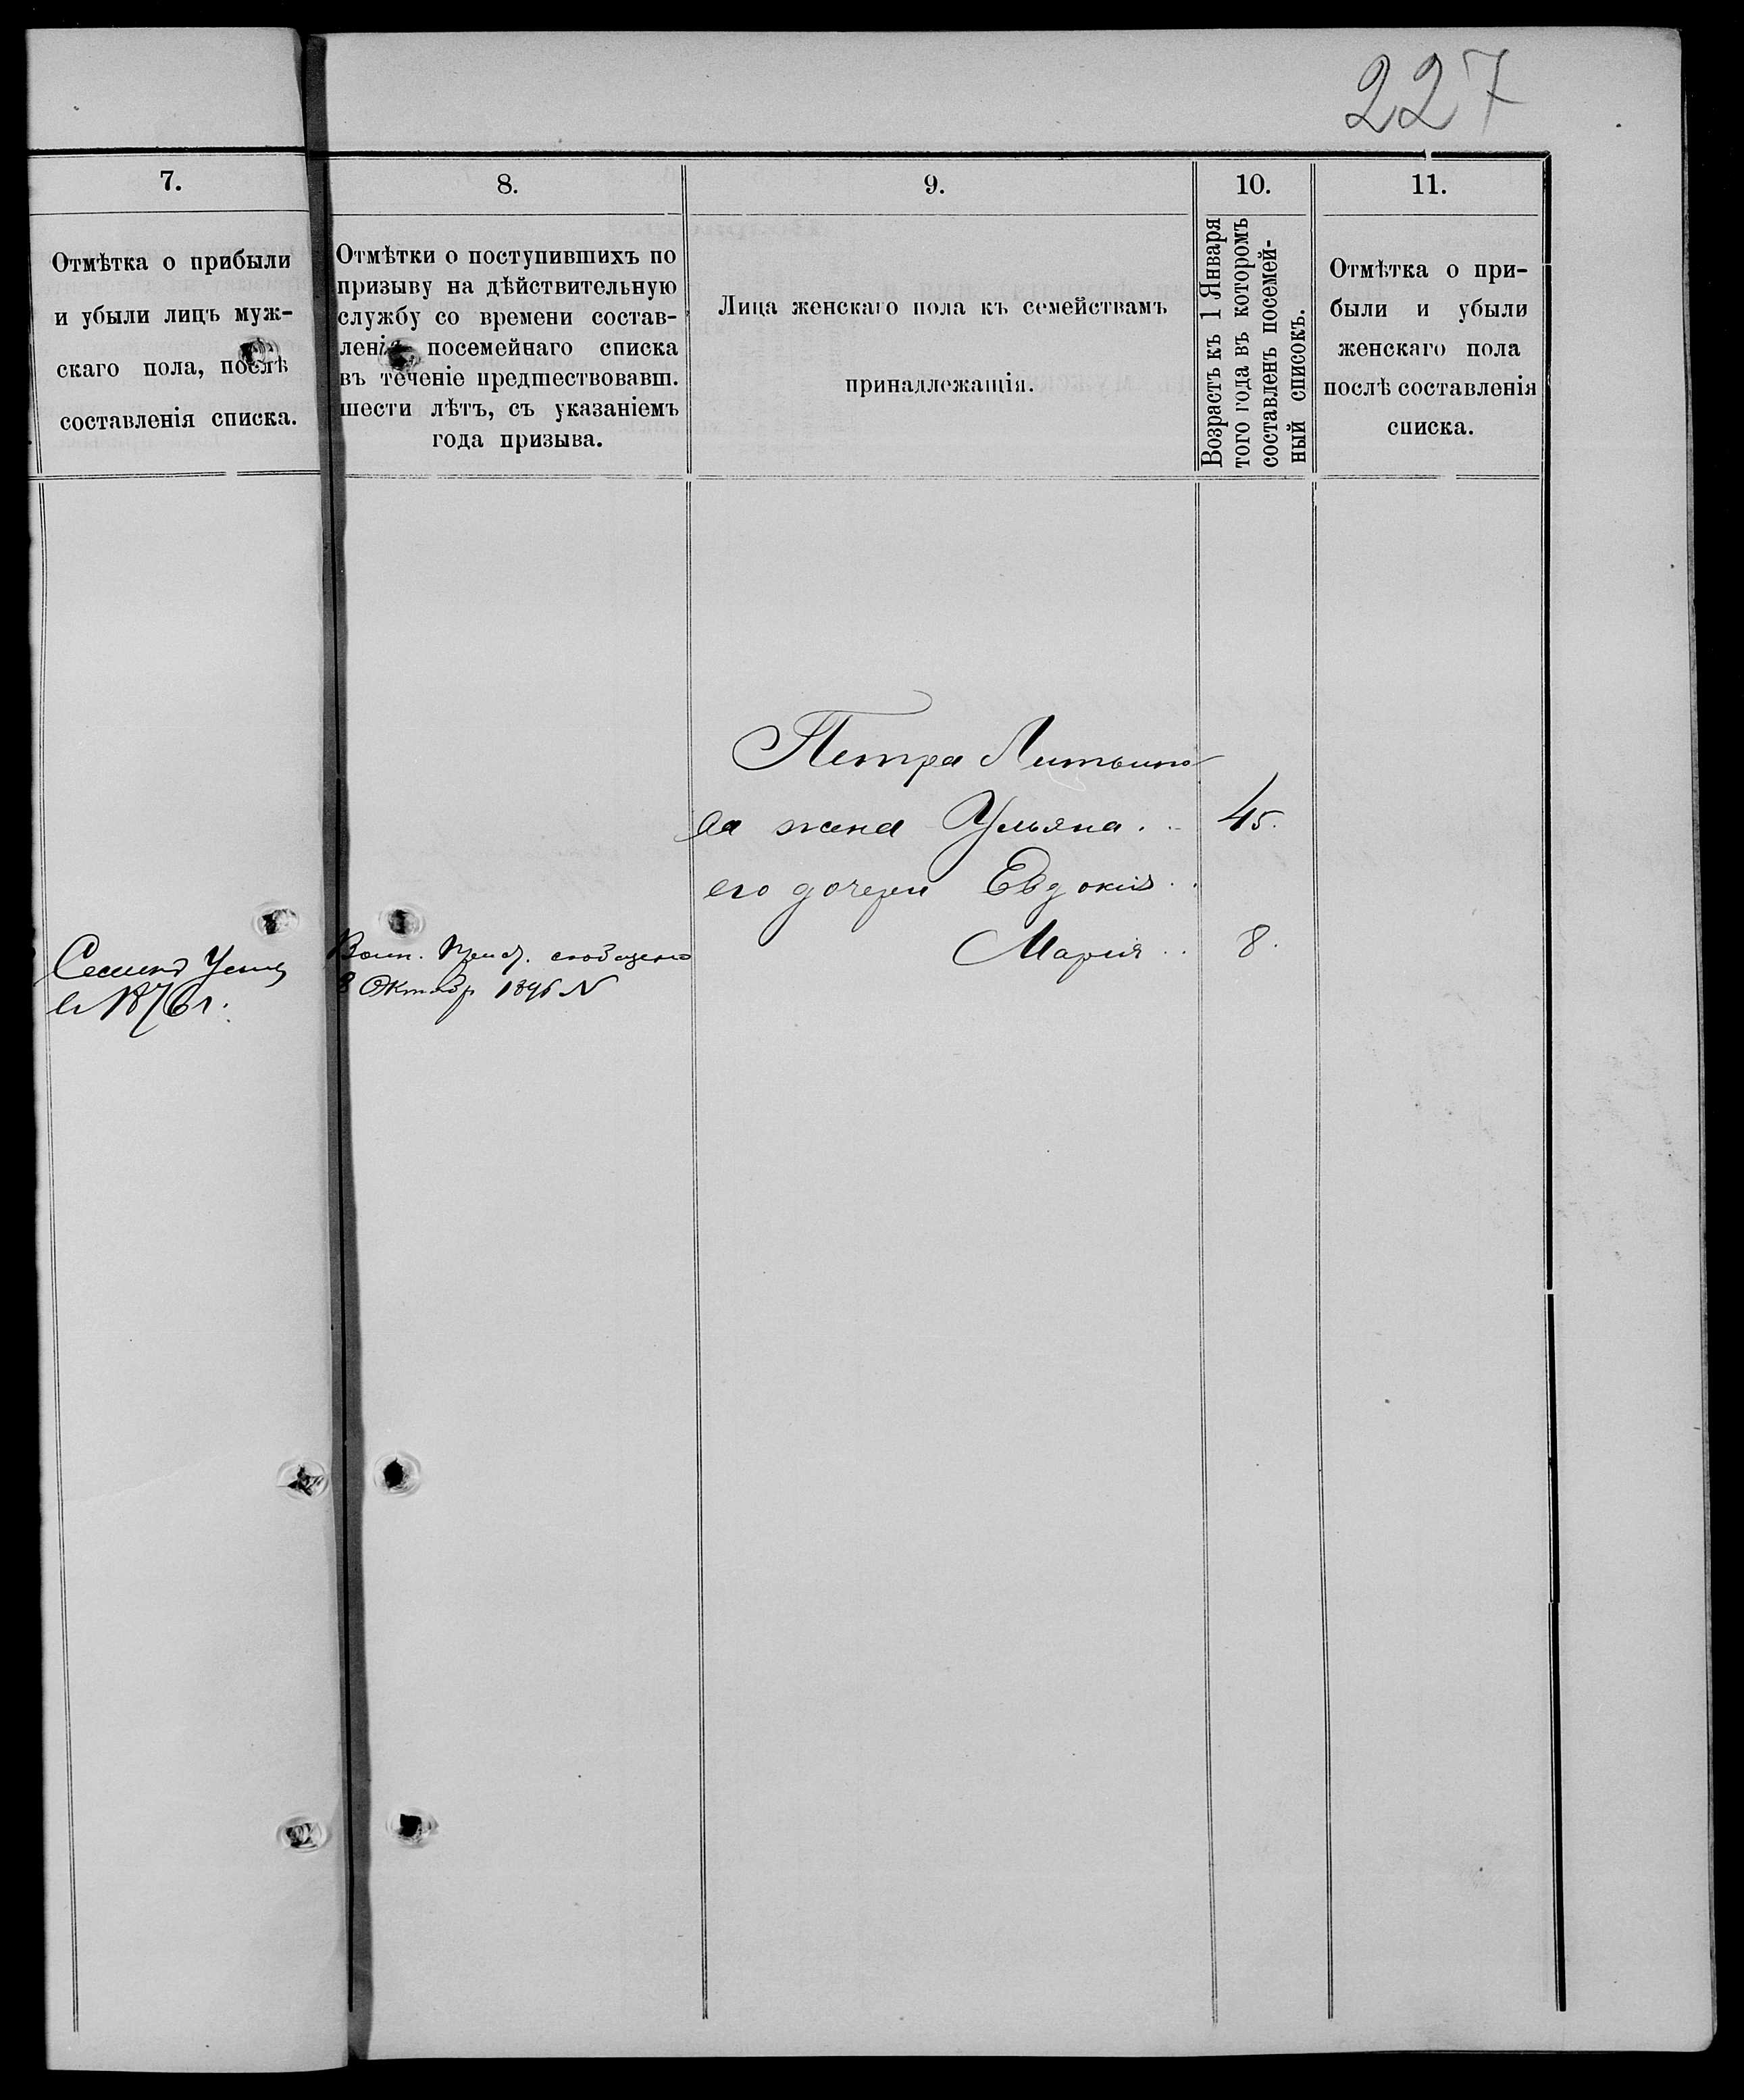 227
7.
Отмѣтка о прибыли
и убыли лицъ муж-
скаго пола, послѣ
составленія списка.
8.
Отмѣтки о поступившихъ по
призыву на дѣйствительную
службу со времени состав-
ленія посемейнаго списка
въ теченіе предшествовавш.
шести лѣтъ, съ указаніемъ
года призыва.
9.
Лица женскаго пола къ семействамъ
принадлежащія.
10.
Возрастъ къ 1 Января
того года въ которомъ
составленъ посемей-
ный списокъ.
11.
Отмѣтка о при-
были и убыли
женскаго пола
послѣ составленія
списка.
Петра Литвино
ва жена Ульяна . . 45.
его дочери Евдокія . .
Марія . . 8.
1876 г.
Воин. сообщено
8 Октябр 1896 N